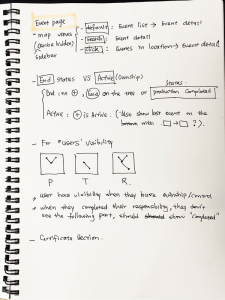 Event page
- map versus
(entire hidden)
sidebar
- default : Event list → Event detail
- search : Event detail
- click : Events in location → Event detail
- End states VS Active (Ownership)
states
End : no + , End on the tree or production completed
Active : + is Active. (Also show last event on the
bottom with □ → □ ? ).
- For users' visibility
P T R.
→ user has visibility when they have ownership/control
→ when they completed their responsibility, they don't
see the following part, should show "completed"
- Certificate section.